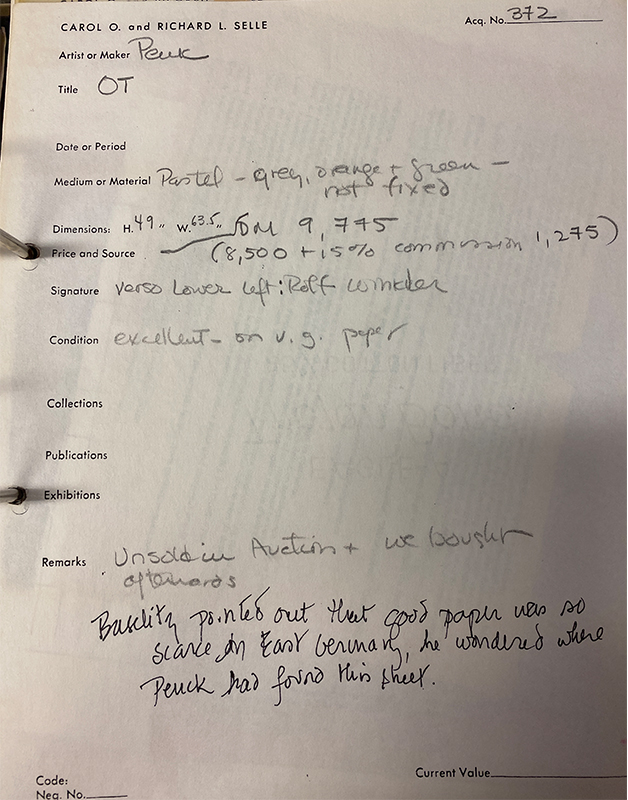 CAROL O. and RICHARD L. SELLE
Acq. No. 372
Artist or Maker Penck
Title OT
Date or Period
Medium or Material Pastel - grey, orange + green -
not fixed
Dimensions: H. 49" W. 63.5" DM 9,775
Price and Source (8,500 + 15% commission 1,275)
Signature verso Lower left: Rolf Winkler
Condition excellent - on v.g. paper
Collections
Publications
Exhibitions
Remarks Unsold in Auction + we bought
afterwards
Baselitz pointed out that good paper was so
scarce in East Germany, he wondered where
Penck had found this sheet.
Current Value
Code:
Neg. No.